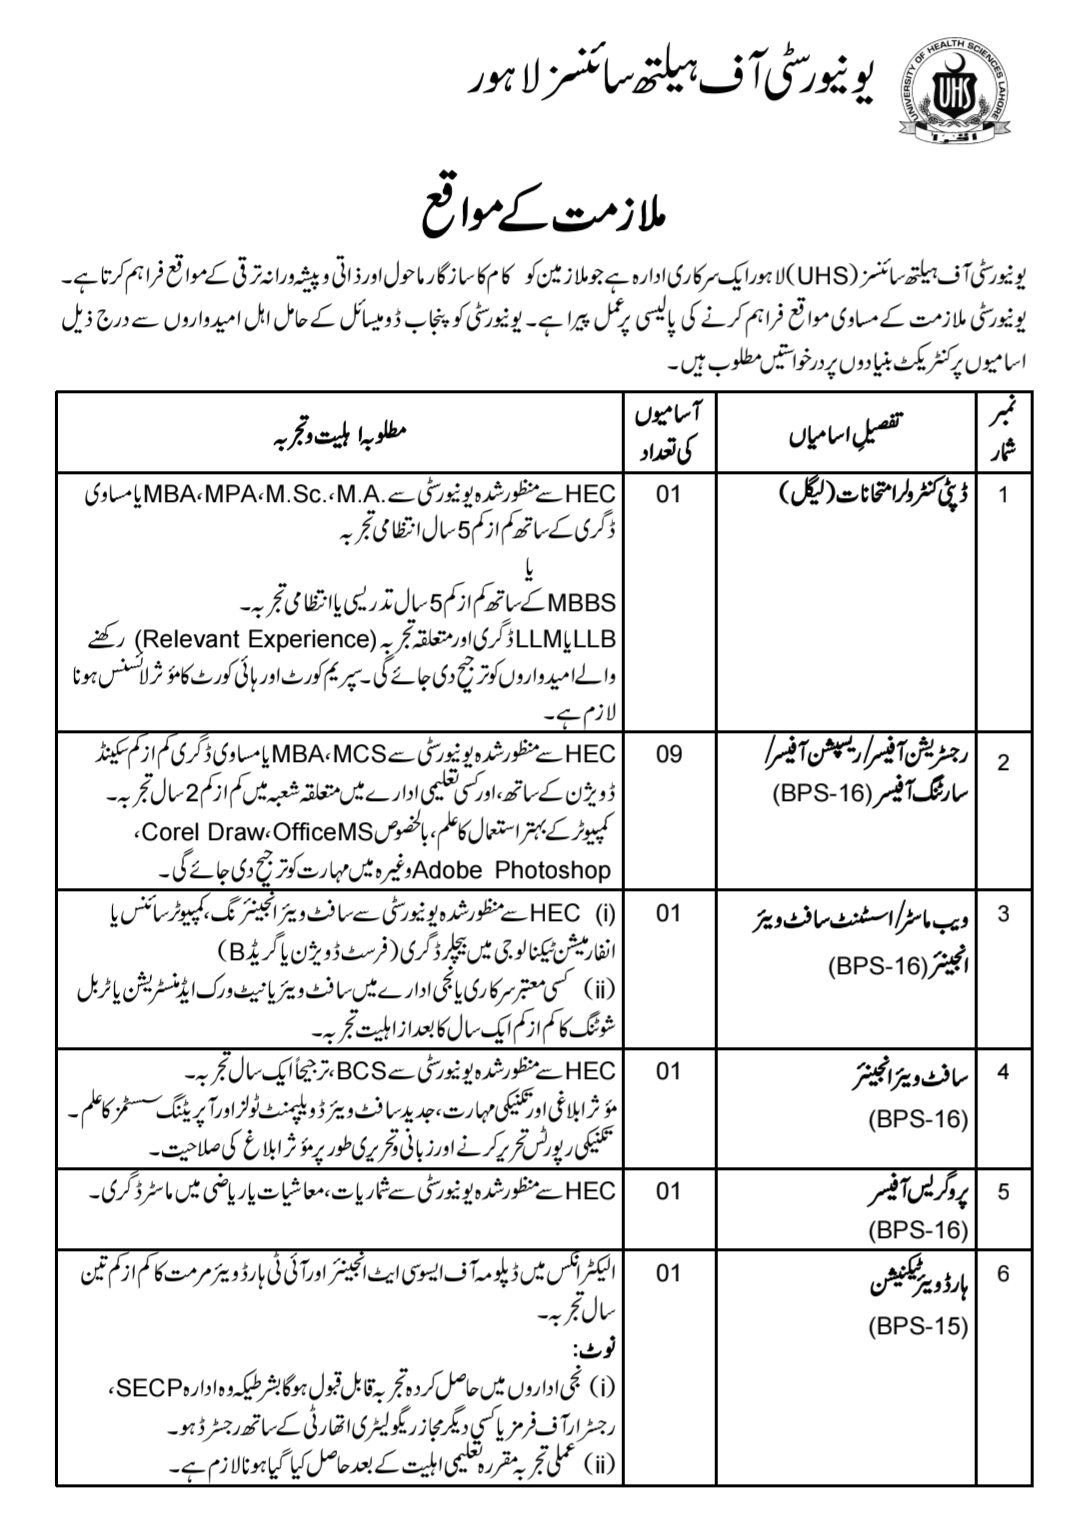 یونیورسٹی آف ہیلتھ سائنسز لاہور
UNIVERSITY OF HEALTH SCIENCES LAHORE
UHS
اقرا
ملازمت کے مواقع
یونیورسٹی آف ہیلتھ سائنسز (UHS) لاہور ایک سرکاری ادارہ ہے جو ملازمین کو کام کا سازگار ماحول اور ذاتی و پیشہ ورانہ ترقی کے مواقع فراہم کرتا ہے۔
یونیورسٹی ملازمت کے مساوی مواقع فراہم کرنے کی پالیسی پر عمل پیرا ہے۔ یونیورسٹی کو پنجاب ڈومیسائل کے حامل اہل امیدواروں سے درج ذیل
اسامیوں پر کنٹریکٹ بنیادوں پر درخواستیں مطلوب ہیں۔
نمبر شمار
تفصیلِ اسامیاں
آسامیوں کی تعداد
مطلوبہ اہلیت و تجربہ
1
ڈپٹی کنٹرولر امتحانات (لیگل)
01
HEC سے منظور شدہ یونیورسٹی سے MBA، MPA، M.Sc.، M.A. یا مساوی
ڈگری کے ساتھ کم از کم 5 سال انتظامی تجربہ
یا
MBBS کے ساتھ کم از کم 5 سال تدریسی یا انتظامی تجربہ۔
LLB یا LLM ڈگری اور متعلقہ تجربہ (Relevant Experience) رکھنے
والے امیدواروں کو ترجیح دی جائے گی۔ سپریم کورٹ اور ہائی کورٹ کا مؤثر لائسنس ہونا
لازم ہے۔
2
رجسٹریشن آفیسر/ریسپشن آفیسر/
سارٹنگ آفیسر (BPS-16)
09
HEC سے منظور شدہ یونیورسٹی سے MBA، MCS یا مساوی ڈگری کم از کم سکینڈ
ڈویژن کے ساتھ، اور کسی تعلیمی ادارے میں متعلقہ شعبہ میں کم از کم 2 سال تجربہ۔
کمپیوٹر کے بہتر استعمال کا علم، بالخصوص OfficeMS، Corel Draw،
Adobe Photoshop وغیرہ میں مہارت کو ترجیح دی جائے گی۔
3
ویب ماسٹر/اسسٹنٹ سافٹ ویئر
انجینئر (BPS-16)
01
(i) HEC سے منظور شدہ یونیورسٹی سے سافٹ ویئر انجینئرنگ، کمپیوٹر سائنس یا
انفارمیشن ٹیکنالوجی میں بیچلر ڈگری (فرسٹ ڈویژن یا گریڈ B)
(ii) کسی معتبر سرکاری یا نجی ادارے میں سافٹ ویئر یا نیٹ ورک ایڈمنسٹریشن یا ٹربل
شوٹنگ کا کم از کم ایک سال کا بعد از اہلیت تجربہ۔
4
سافٹ ویئر انجینئر
(BPS-16)
01
HEC سے منظور شدہ یونیورسٹی سے BCS، ترجیحاً ایک سال تجربہ۔
مؤثر ابلاغی اور تکنیکی مہارت، جدید سافٹ ویئر ڈویلپمنٹ ٹولز اور آپریٹنگ سسٹمز کا علم۔
تکنیکی رپورٹس تحریر کرنے اور زبانی و تحریری طور پر مؤثر ابلاغ کی صلاحیت۔
5
پروگریس آفیسر
(BPS-16)
01
HEC سے منظور شدہ یونیورسٹی سے شماریات، معاشیات یا ریاضی میں ماسٹر ڈگری۔
6
ہارڈ ویئر ٹیکنیشن
(BPS-15)
01
الیکٹرانکس میں ڈپلومہ آف ایسوسی ایٹ انجینئر اور آئی ٹی ہارڈ ویئر مرمت کا کم از کم تین
سال تجربہ۔
نوٹ:
(i) نجی اداروں میں حاصل کردہ تجربہ قابل قبول ہوگا بشرطیکہ وہ ادارہ SECP،
رجسٹرار آف فرمز یا کسی دیگر مجاز ریگولیٹری اتھارٹی کے ساتھ رجسٹرڈ ہو۔
(ii) عملی تجربہ مقررہ تعلیمی اہلیت کے بعد حاصل کیا گیا ہونا لازم ہے۔